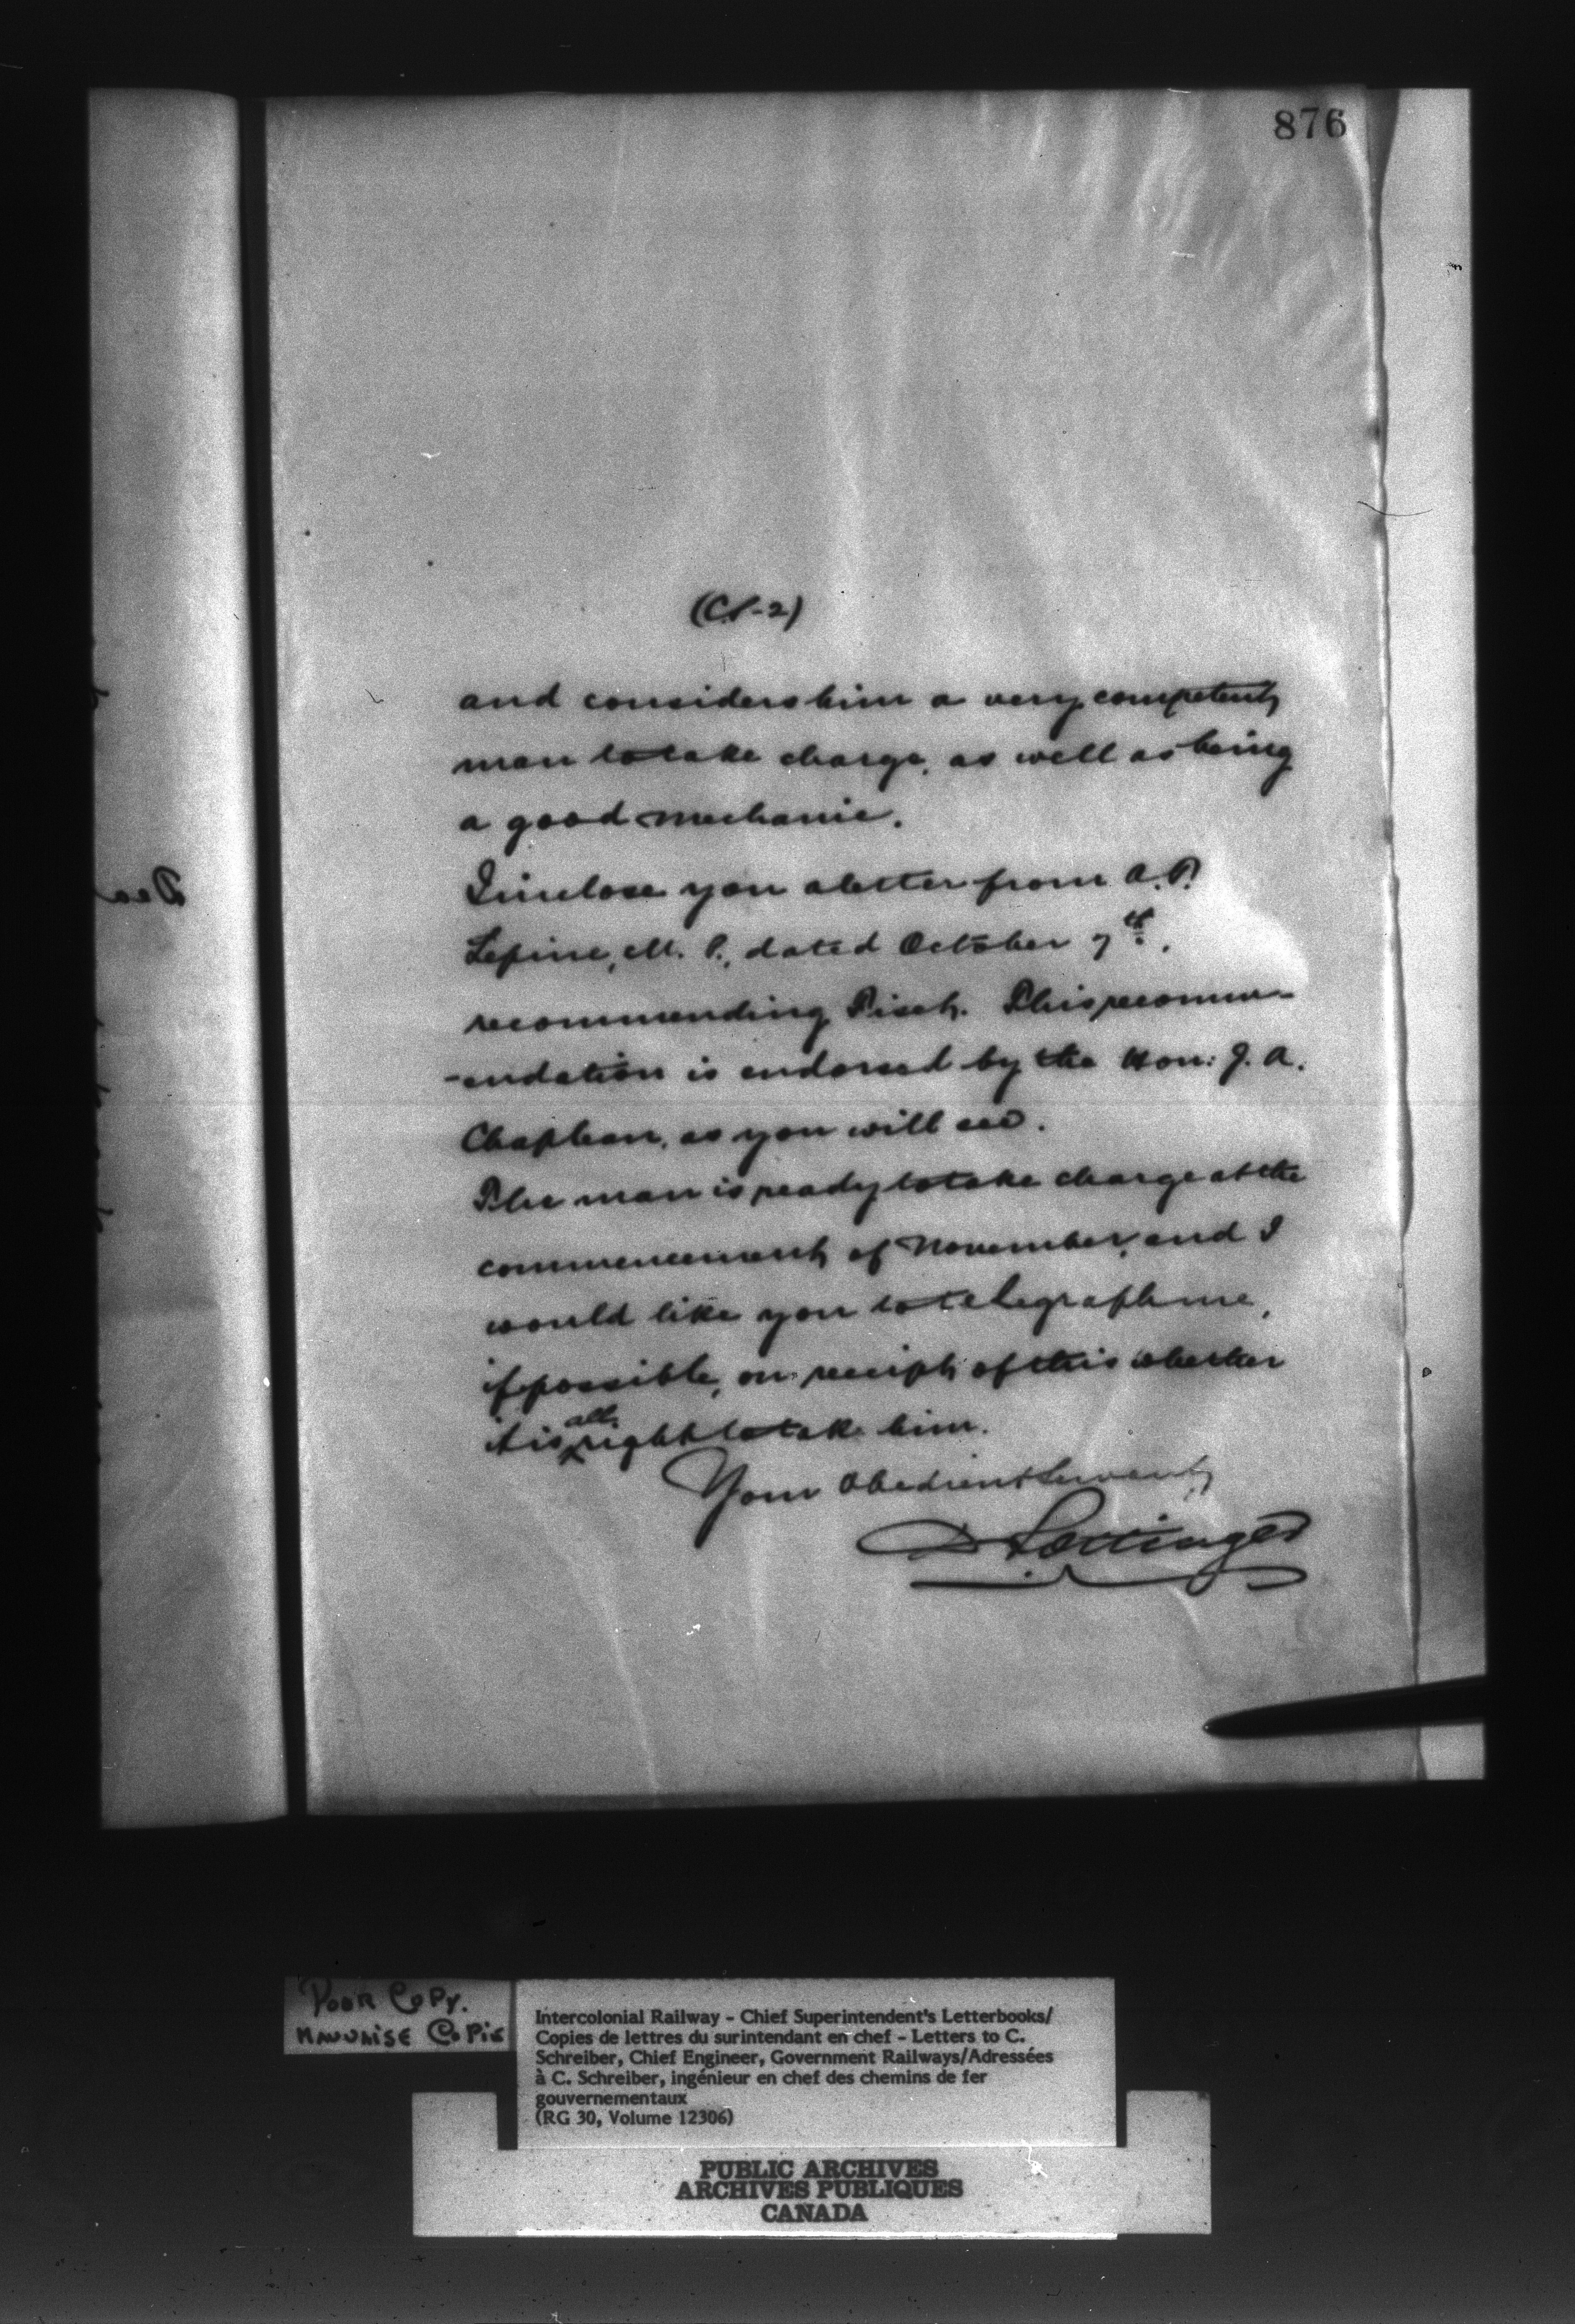 876
(C.S-2)
and considers him a very competent
man to take charge, as well as being
a good mechanic.
I inclose you a letter from A.P.
Lepine, M. P., dated October 7th,
recommending Pisch. This recomm-
-endation is endorsed by the Hon: J. A.
Chapleau, as you will see.
The man is ready to take charge at the
commencement of November, and I
would like you to telegraph me,
if possible, on receipt of this whether
it is all right to take him.
Your Obedient Servant
D Pottinger
POOR COPY.
MAUVAISE COPIE
Intercolonial Railway - Chief Superintendent's Letterbooks/
Copies de lettres du surintendant en chef - Letters to C.
Schreiber, Chief Engineer, Government Railways/Adressées
à C. Schreiber, ingénieur en chef des chemins de fer
gouvernementaux
(RG 30, Volume 12306)
PUBLIC ARCHIVES
ARCHIVES PUBLIQUES
CANADA